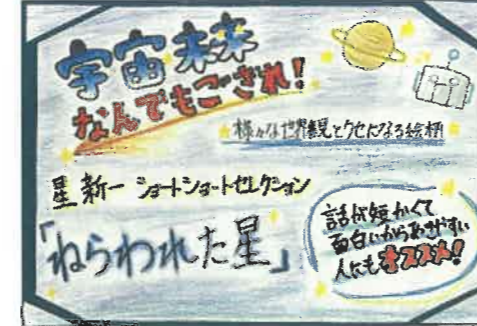 宇宙未来
なんでもござれ!
様々な世界観とクセになる絵柄
星新一 ショートショートセレクション
「ねらわれた星」
話が短かくて
面白いからあきやすい
人にもオススメ!